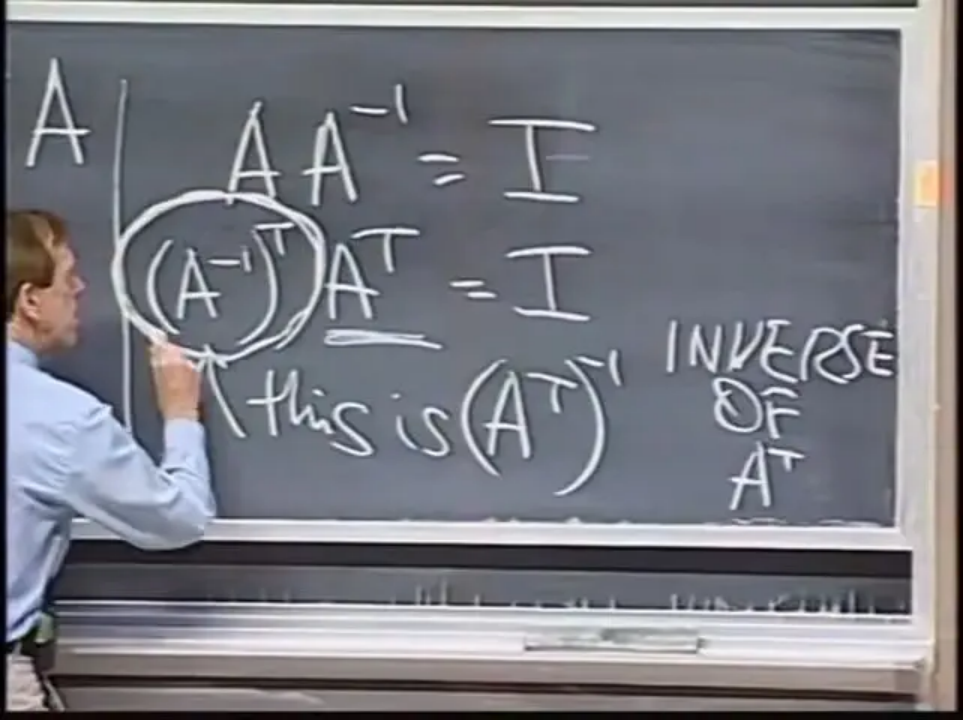 A
A A⁻¹ = I
(A⁻¹)ᵀ Aᵀ = I
this is (Aᵀ)⁻¹
INVERSE
OF
Aᵀ